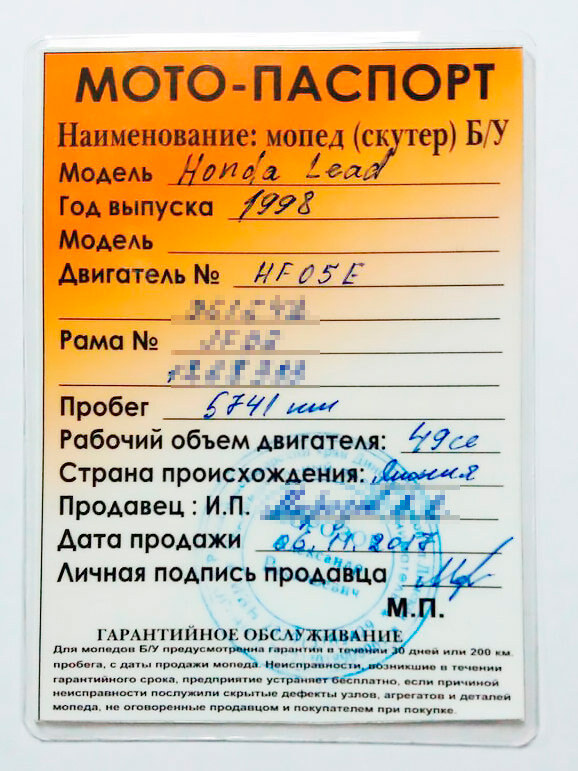 МОТО-ПАСПОРТ
Наименование: мопед (скутер) Б/У
Модель Honda Lead
Год выпуска 1998
Модель
Двигатель № HF05E
Рама №
Пробег 5741 km
Рабочий объем двигателя: 49cc
Страна происхождения: Япония
Продавец : И.П.
Дата продажи 06.11.2017
Личная подпись продавца
М.П.
ГАРАНТИЙНОЕ ОБСЛУЖИВАНИЕ
Для мопедов Б/У предусмотрена гарантия в течении 30 дней или 200 км
пробега, с даты продажи мопеда. Неисправности, возникшие в течении
гарантийного срока, предприятие устраняет бесплатно, если причиной
неисправности послужили скрытые дефекты узлов, агрегатов и деталей
мопеда, не оговоренные продавцом и покупателем при покупке.